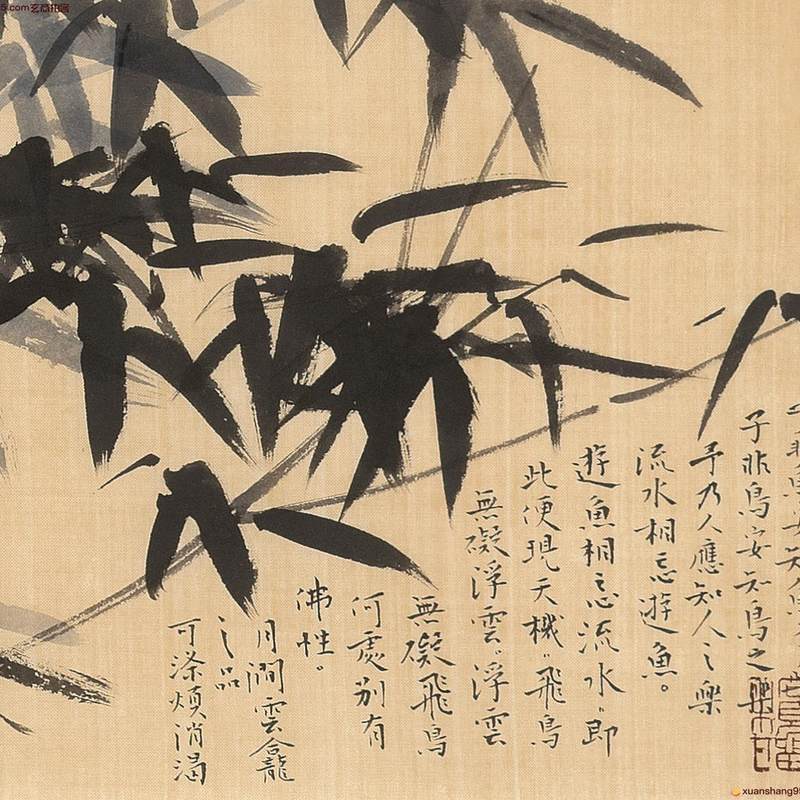 子非鳥安知鳥之
予乃人應知人之樂
流水相忘遊魚。
遊魚相忘流水。即
此便現天機。飛鳥
無礙浮雲。浮雲
無礙飛鳥
何處別有
佛性。
月澗雲龕
之品
可滌煩消渴
5.com
xuanshang9